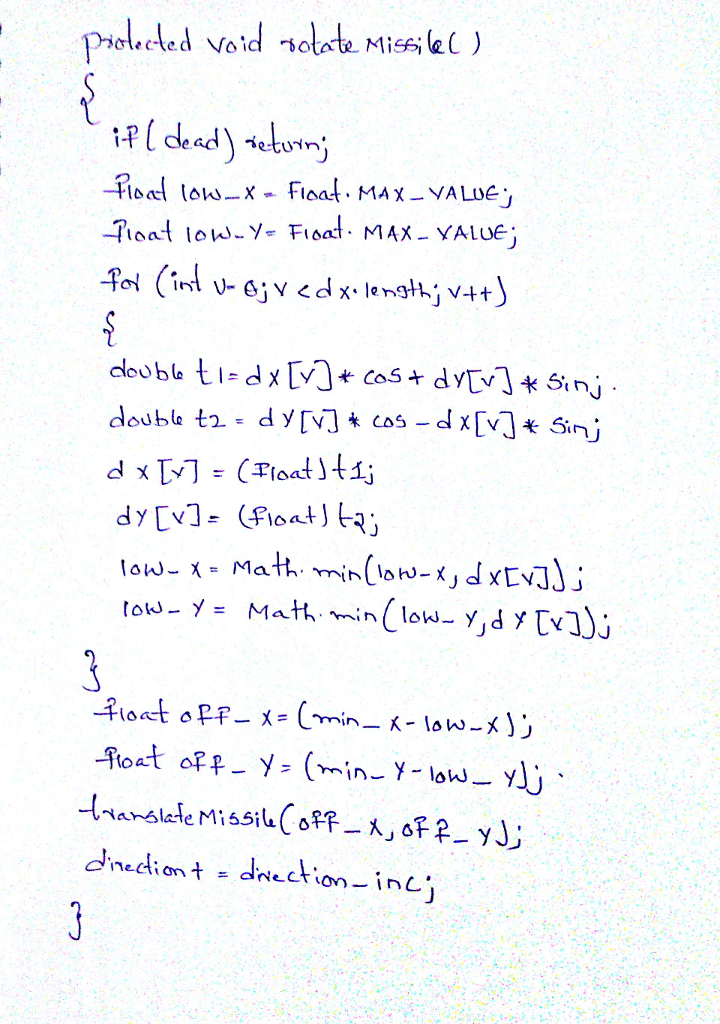 protected void rotateMissile()
{
if(dead) return;
float low_x = Float.MAX_VALUE;
float low_y = Float.MAX_VALUE;
for (int v=0; v<dx.length; v++)
{
double t1=dx[v]*cos+dy[v]*sin;
double t2 = dy[v]*cos-dx[v]*sin;
dx[v] = (float)t1;
dy[v] = (float)t2;
low_x = Math.min(low_x,dx[v]);
low_y = Math.min(low_y,dy[v]);
}
float off_x=(min_x-low_x);
float off_y=(min_y-low_y);
translateMissile(off_x,off_y);
direction+=direction_inc;
}